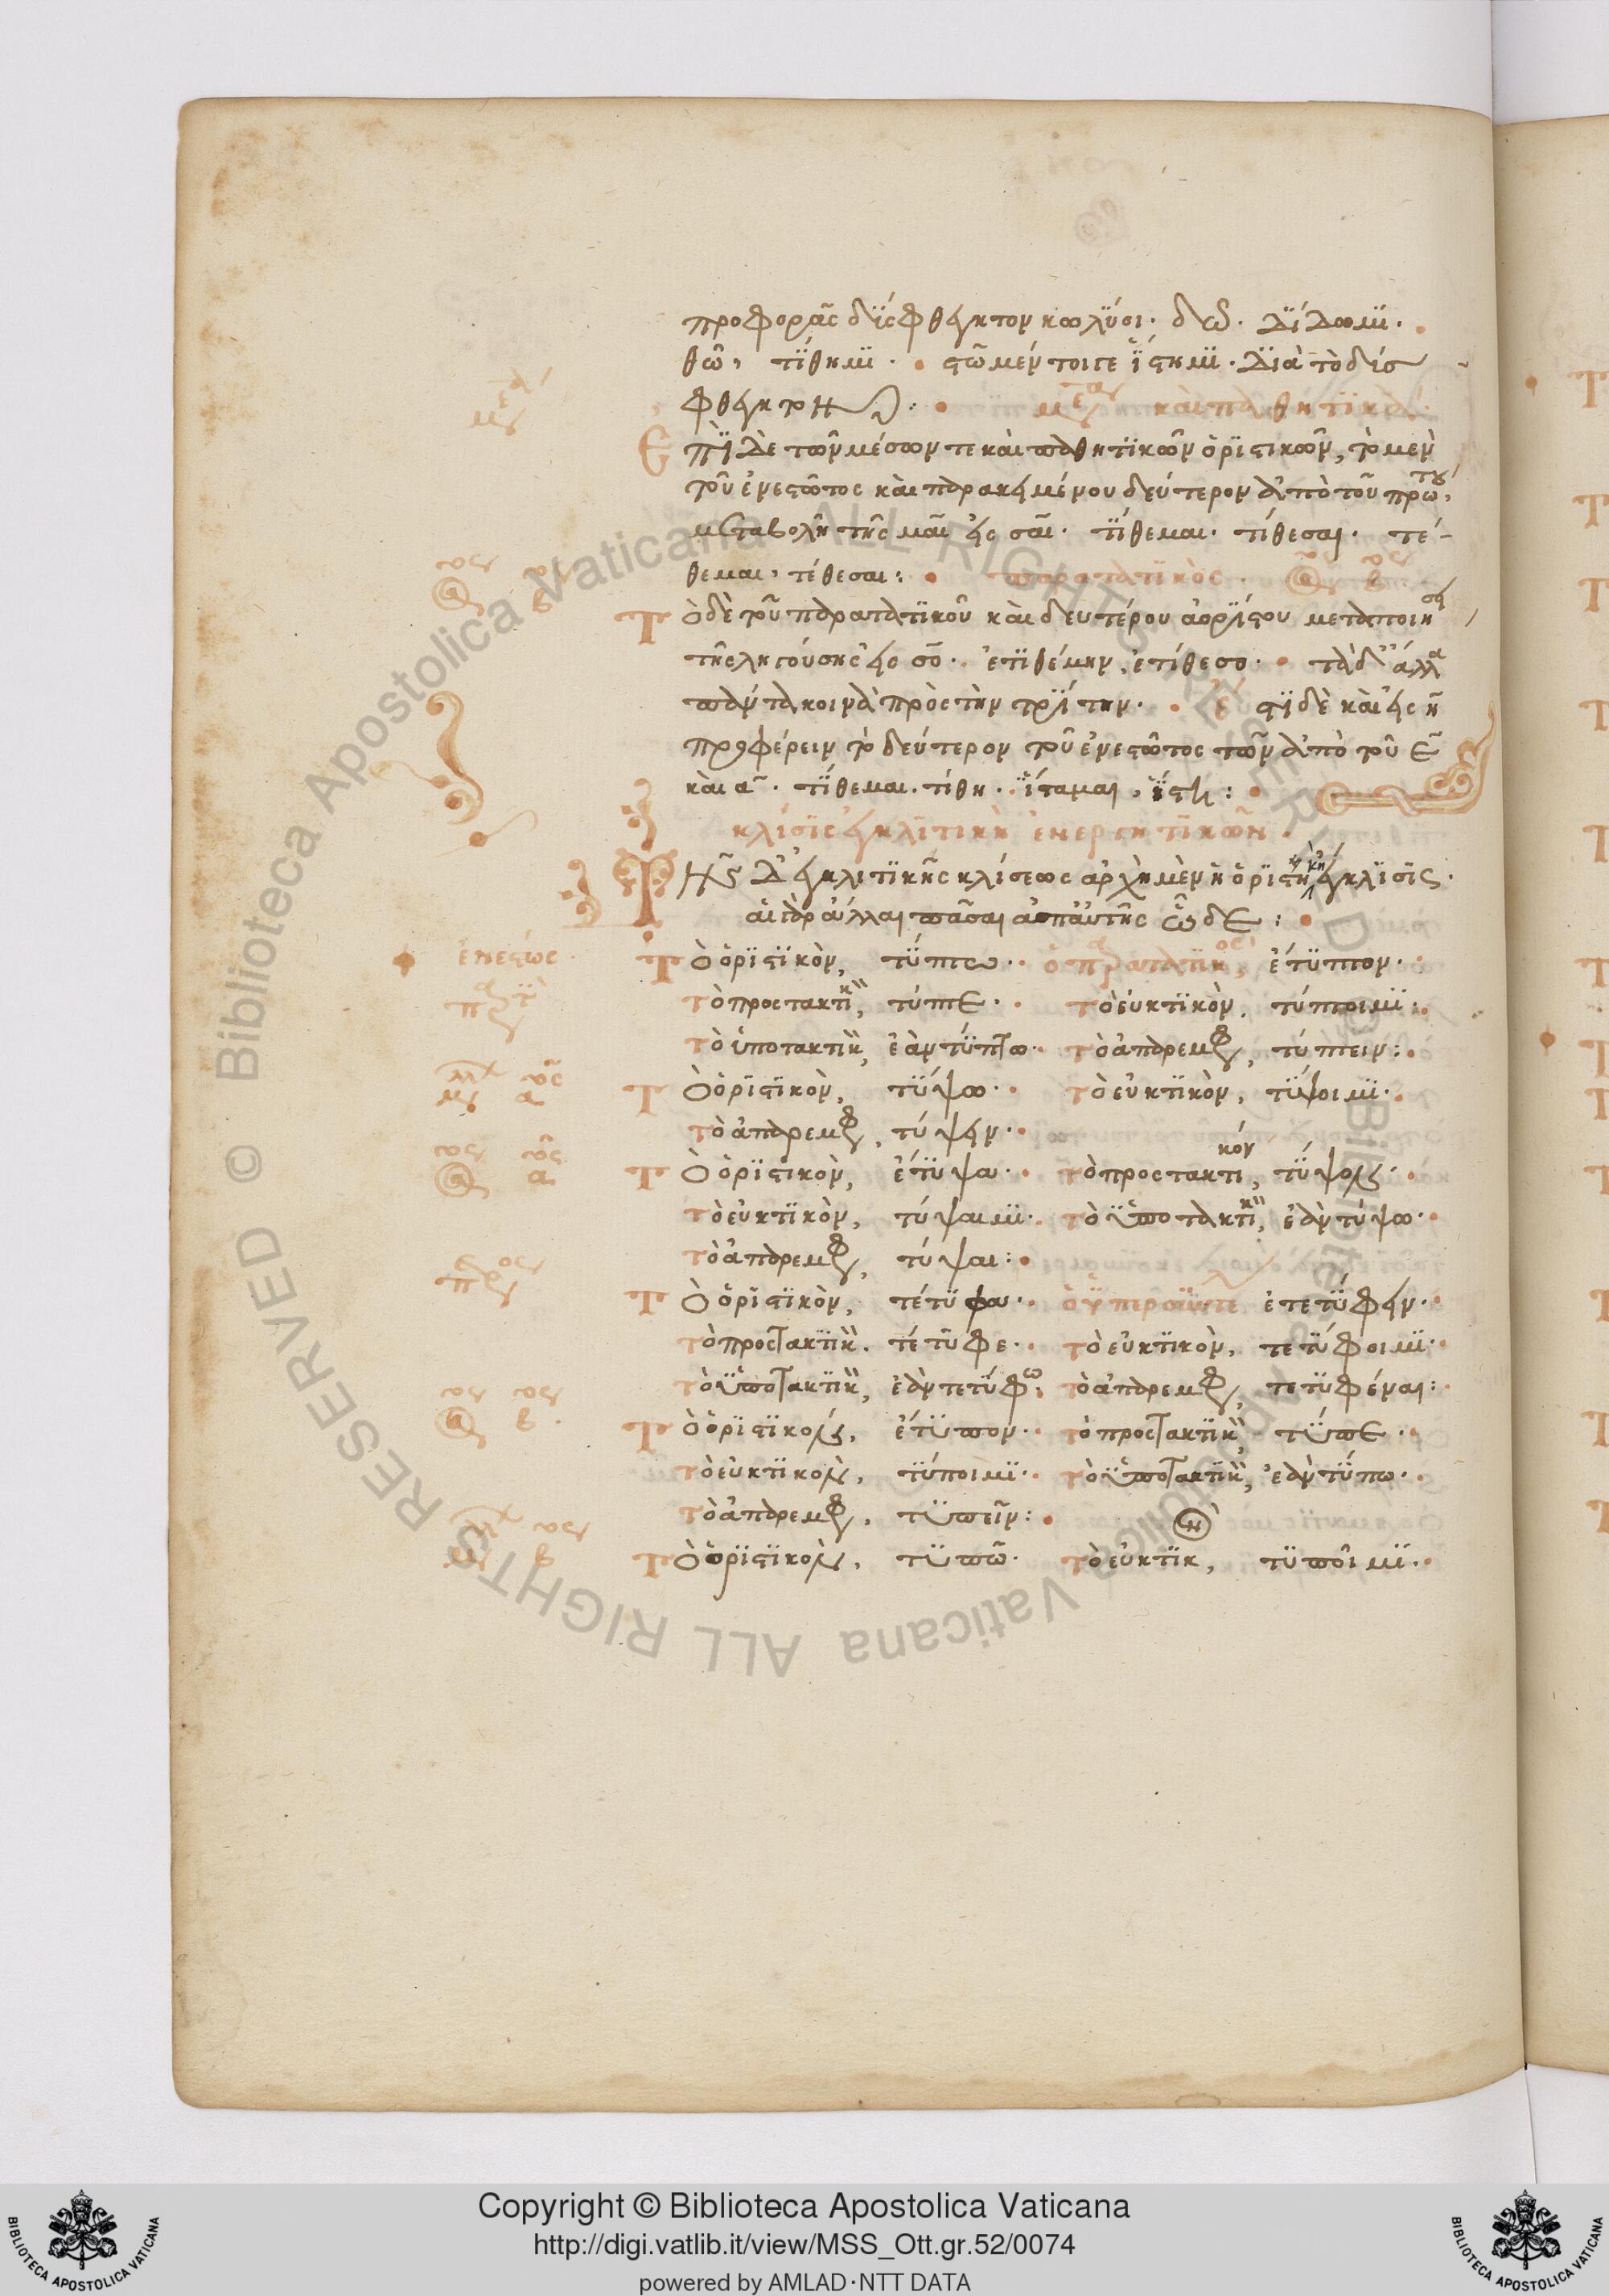 προφορᾶς δύσφθεγκτον κωλύσι· διδῶ· δίδωμι·
θῶ, τίθημι· στῶ μέν τοι γε ἵστημι· διὰ τὸ δύσ
φθεγκτον: μέσα καὶ παθητικά
Ἐπὶ δὲ τῶν μέσων τε καὶ παθητικῶν ὁριστικῶν, τὸ μὲν
τοῦ ἐνεστῶτος καὶ παρακειμένου δεύτερον ἀπὸ τοῦ πρώτου,
μεταβολῆ τῆς μαι εἰς σαι· τίθεμαι· τίθεσαι· τέ-
θεμαι, τέθεσαι: παρατατικὸς· ἀόριστος β
Τὸ δὲ τοῦ παρατατικοῦ καὶ δευτέρου ἀορίστου μεταποιήσει
τῆς ληγούσης εἰς σο· ἐτιθέμην, ἐτίθεσο· τὰ δ' ἄλλα
πάντα κοινὰ πρὸς τὴν τρίτην· ἔστι δὲ καὶ εἰς η
προφέρειν τὸ δεύτερον τοῦ ἐνεστῶτος τῶν ἀπὸ τοῦ ε
καὶ α· τίθεμαι· τίθη· ἵσταμαι, ἵστη:
κλίσις ἐγκλιτικὴ ἐνεργητικῶν·
Τῆς δ' ἐγκλιτικῆς κλίσεως ἀρχὴ μὲν ἡ ὁριστικὴ ἔγκλισις·
αἱ γὰρ ἄλλαι πᾶσαι ἀπ' αὐτῆς ὧδε:
ἐνεστώς· Τὸ ὁριστικὸν, τύπτω· ὁ παρατατικός, ἔτυπτον·
παρατατικὸς τὸ προστακτικὸν, τύπτε· τὸ εὐκτικὸν, τύπτοιμι·
τὸ ὑποτακτικὸν, ἐὰν τύπτω· τὸ ἀπαρέμφατον, τύπτειν:
μέλλων αος Τὸ ὁριστικὸν, τύψω· τὸ εὐκτικὸν, τύψοιμι·
τὸ ἀπαρέμφατον, τύψειν·
ἀόριστος αος Τὸ ὁριστικὸν, ἔτυψα· τὸ προστακτικόν, τύψον·
τὸ εὐκτικὸν, τύψαιμι· τὸ ὑποτακτικὸν, ἐὰν τύψω·
τὸ ἀπαρέμφατον, τύψαι:
παρακείμενος Τὸ ὁριστικὸν, τέτυφα· ὁ ὑπερσυντέλικος ἐτετύφειν·
τὸ προστακτικὸν· τέτυφε· τὸ εὐκτικὸν, τετύφοιμι·
τὸ ὑποτακτικὸν, ἐὰν τετύφω· τὸ ἀπαρέμφατον, τετυφέναι:
ἀόριστος βος· Τὸ ὁριστικὸν, ἔτυπον· τὸ προστακτικὸν, τύπε·
τὸ εὐκτικὸν, τύποιμι· τὸ ὑποτακτικὸν, ἐὰν τύπω·
τὸ ἀπαρέμφατον, τυπεῖν:
μέλλων βος Τὸ ὁριστικὸν, τυπῶ· τὸ εὐκτικὸν, τυποῖμι·
Copyright © Biblioteca Apostolica Vaticana
http://digi.vatlib.it/view/MSS_Ott.gr.52/0074
powered by AMLAD·NTT DATA
© Biblioteca Apostolica Vaticana ALL RIGHTS RESERVED
BIBLIOTECA APOSTOLICA VATICANA
BIBLIOTECA APOSTOLICA VATICANA